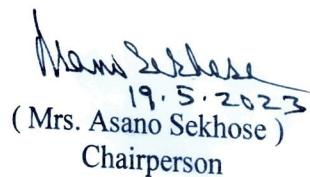 Asano Sekhose
19.5.2023
( Mrs. Asano Sekhose )
Chairperson